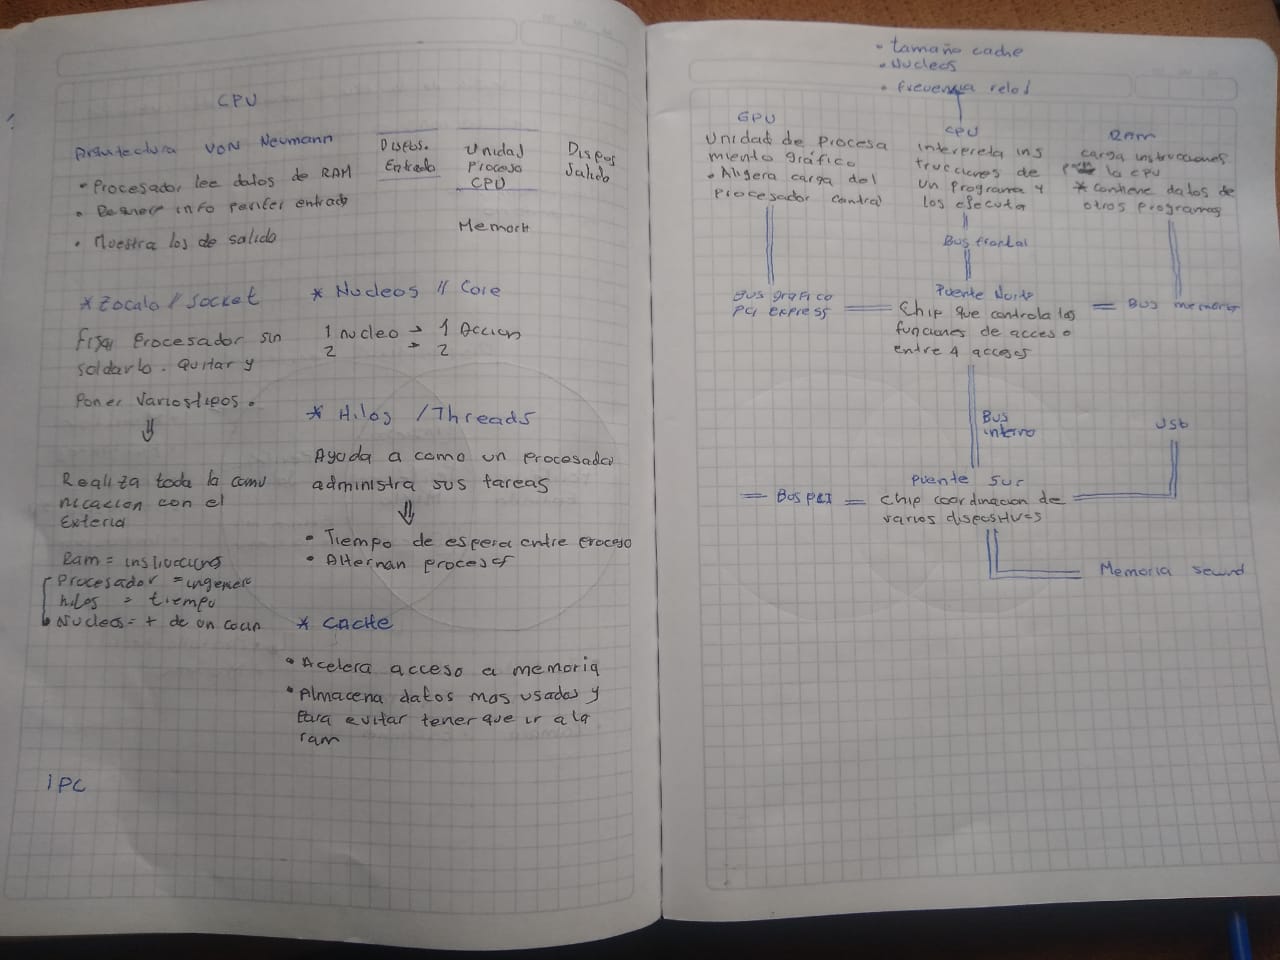 CPU
Arquitectura VON Neumann
• Procesador lee datos de RAM
info perifer entrada
• Muestra los de salida
Dispos.
Entrada
Unidad
Proceso
CPU
Dispos
Salida
Memori
* Zocalo // Socket
Fijar Procesador sin
soldarlo. Quitar y
Poner Varios tipos.
⇓
Realiza toda la comu
nicacion con el
Exterior
Ram = instrucciones
Procesador =
hilos = tiempo
Nucleos = + de un
* Nucleos // Core
1 nucleo → 1 Accion
2 → 2
* Hilos / Threads
Ayuda a como un procesador
administra sus tareas
⇓
• Tiempo de espera entre proceso
• Alternan procesos
* CACHE
• Acelera acceso a memoria
• Almacena datos mas usados y
para evitar tener que ir a la
ram
IPC
• tamaño cache
• Nucleos
• frecuencia reloj
GPU
Unidad de Procesa
miento gráfico
• Aligera carga del
procesador central
CPU
interpreta ins
trucciones de
un programa y
los ejecuta
RAM
carga instrucciones
la CPU
* contiene datos de
otros programas
Bus frontal
Bus grafico
PCI express
Puente Norte
Chip que controla las
funciones de acceso
entre 4 accesos
Bus memoria
Bus
interno
Usb
Puente Sur
Bus PCI
Chip coordinacion de
varios dispositivos
Memoria secund